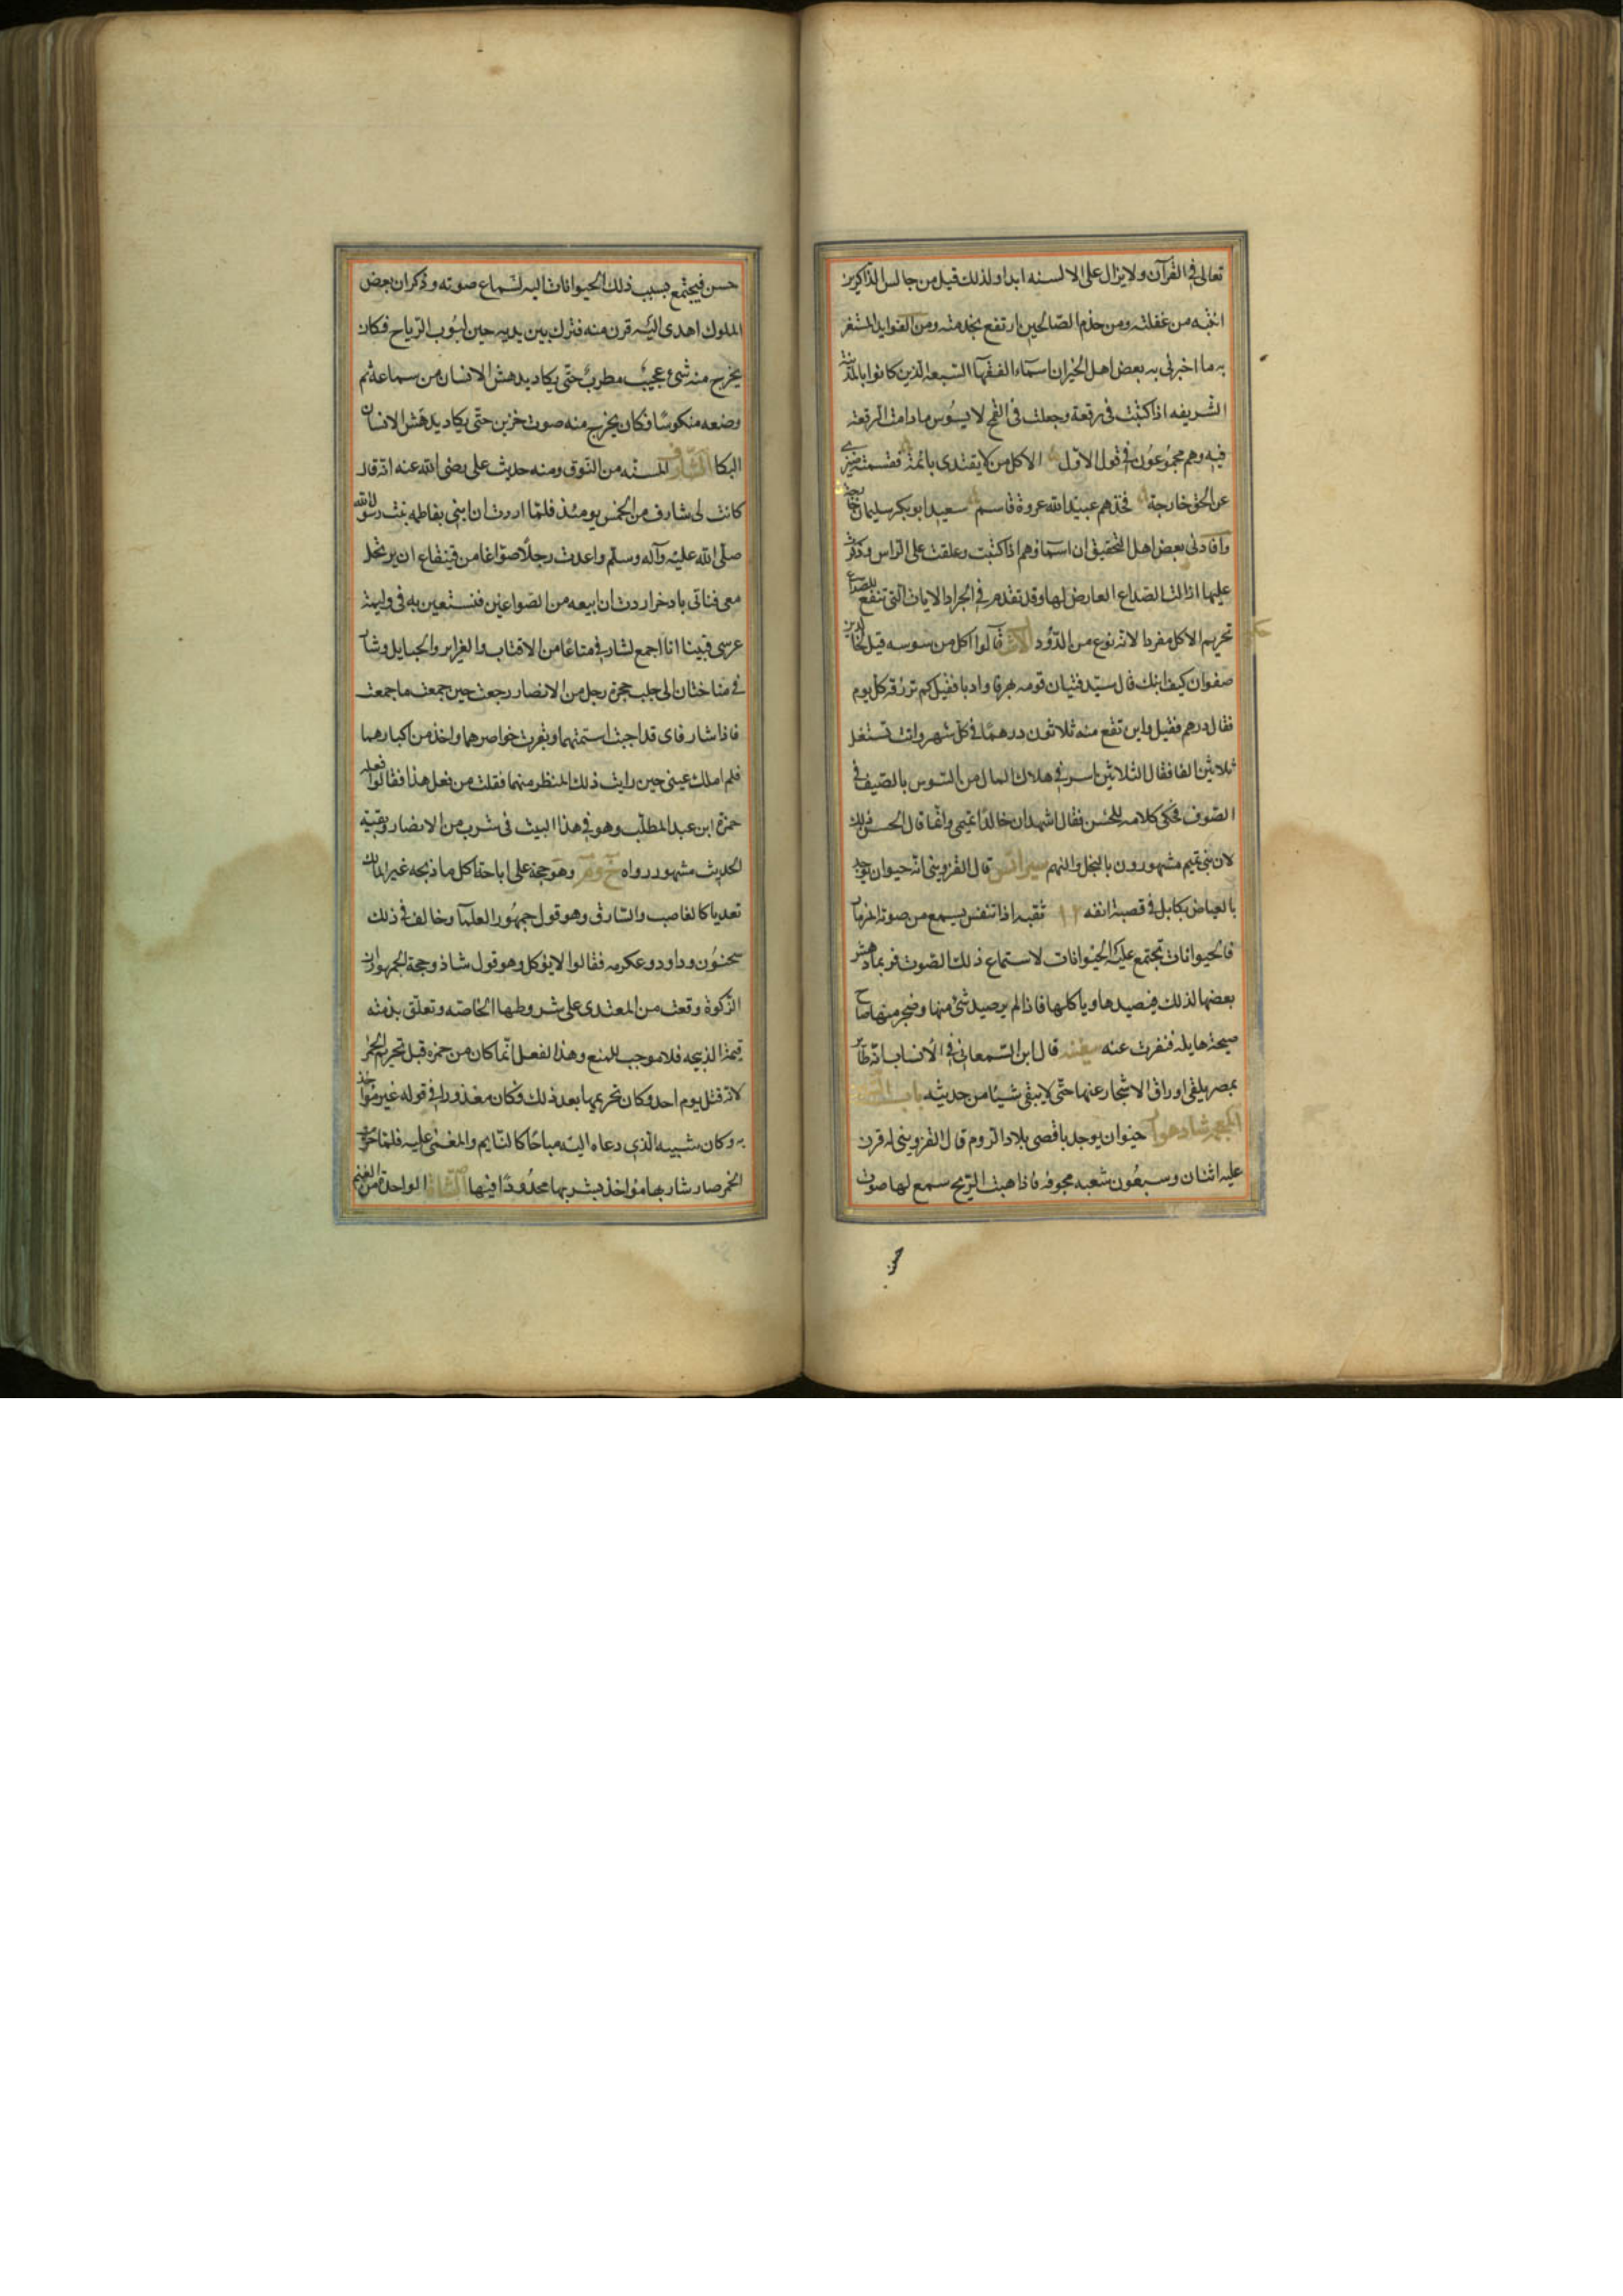 تعالى في القرآن ولا يزال على الالسنه ابدا ولذلك قيل من جالس الذاكرين
انتبه من غفلته ومن خدم الصالحين ارتفع بخدمته ومن الفوايد المستغر
به ما اخبرني به بعض اهل الخير ان اسماء الفقهآ السبعه الذين كانوا بالمدينة
الشريفه اذا كتبت في رقعة وجعلت في القمح لا يسوس مادامت الرقعة
فيه وهم مجموعون في قول الاول الا كل من لا يقتدى بائمة فقسمته ضيزى
عن الحق خارجة فخذهم عبيد الله عروة قاسم سعيد ابو بكر سليمان خارجة
وافادني بعض اهل التحقيق ان اسماؤهم اذا كتبت وعلقت على الراس وذكرت
عليها ازالت الصداع العارض لها وقد تقدم في الجراد الايات التي تنفع للصداع
تحريم الاكل مفردا لانه نوع من الدود قالوا اكل من سوسه قيل لخالد بن
صفوان كيف ابنك قال سيد فتيان قومه ظرفا وادبا فقيل كم ترزقه كل يوم
فقال درهم فقيل واين تقع منه ثلاثون درهما في كل شهر وانت تستغل
ثلاثين الفا فقال الثلاثين اسرع في هلاك المال من السوس بالصيف في
الصوف فحكى كلامه للحسن فقال اشهد ان خالدا تميمي وانما قال الحسن ذلك
لان بني تميم مشهورون بالبخل والنهم سيرانس قال القزويني انه حيوان يوجد
بالعياض بكابل في قصبة انفه ١٢ ثقبه اذا تنفس يسمع من صوته المزمار
فالحيوانات تجتمع عليه الحيوانات لاستماع ذلك الصوت فربما دهش
بعضها لذلك فيصيدها وياكلها فاذا لم يرصيد شئ منها وضجر منها صاح
صيحة هايله فنفرت عنه سفينه قال ابن السمعاني في الانساب انه طائر
بمصر يلقى اوراق الاشجار عنها حتى لا يبقى شيئا من حديثه باب الشين
المعجم شادهوار حيوان يوجد باقصى بلاد الروم قال القزويني له قرن
عليه اثنان وسبعون شعبه مجوفه فاذا هبت الريح سمع لها صوت
حسن
حسن فيجتمع بسبب ذلك الحيوانات اليه لسماع صوته وذكر ان بعض
الملوك اهدى اليه قرن منه فترك بين يديه حين هبوب الرياح فكان
يخرج منه شئ عجيب مطرب حتى يكاد يدهش الانسان من سماعه ثم
وضعه منكوسا فكان يخرج منه صوت حزين حتى يكاد يدهش الانسان
البكا الشارف المسنه من النوق ومنه حديث على رضي الله عنه انه قال
كانت لى شارف من الخمس يومئذ فلما اردت ان ابني بفاطمه بنت رسول الله
صلى الله عليه وآله وسلم واعدت رجلا صواغا من قينقاع ان يرتحل
معى فناتى باذخر اردت ان ابيعه من الصواغين فنستعين به في وليمة
عرسى فبينا انا اجمع لشارفي متاعا من الاقتاب والغراير والحبايل وشار
في مناختان الى جلب حجرة رجل من الانصار رجعت حين جمعت ما جمعت
فاذا شارفاى قد اجبت اسنمتهما وبقرت خواصرهما واخذ من اكبادهما
فلم املك عيني حين رايت ذلك المنظر منهما فقلت من فعل هذا فقالوا فعله
حمزة ابن عبد المطلب وهو في هذا البيت في شرب من الانصار وبقية
الحديث مشهور رواه خ وم وهو حجة على اباحة اكل ما ذبحه غير المالك
تعديا كالغاصب والسارق وهو قول جمهور العلما وخالف في ذلك
سحنون وداود وعكرمه فقالوا لا يؤكل وهو قول شاذ وحجة الجمهور ان
الزكوة وقعت من المعتدى على شروطها الخاصه وتعلق بذمته
قيمة الذبيحه فلا موجب للمنع وهذا الفعل انما كان من حمزه قبل تحريم الخمر
لانه قتل يوم احد وكان تحريمها بعد ذلك وكان معذورا في قوله غير مؤاخذ
به وكان شبيه الذي دعاه اليه مباحا كالنايم والمغمى عليه فلما حرمت
الخمر صار شاربها مؤاخذ بشربها محدودا فيها الشاة الواحدة من الغنم